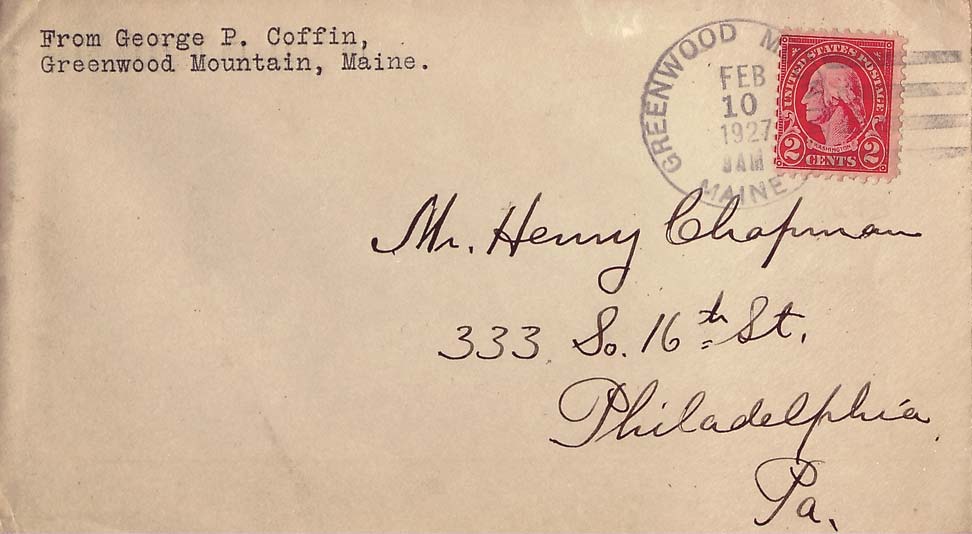 From George P. Coffin,
Greenwood Mountain, Maine.
GREENWOOD M
FEB
10
1927
MAINE
UNITED STATES POSTAGE
WASHINGTON
2 CENTS 2
Mr. Henry Chapman
333 So. 16th St.
Philadelphia
Pa.